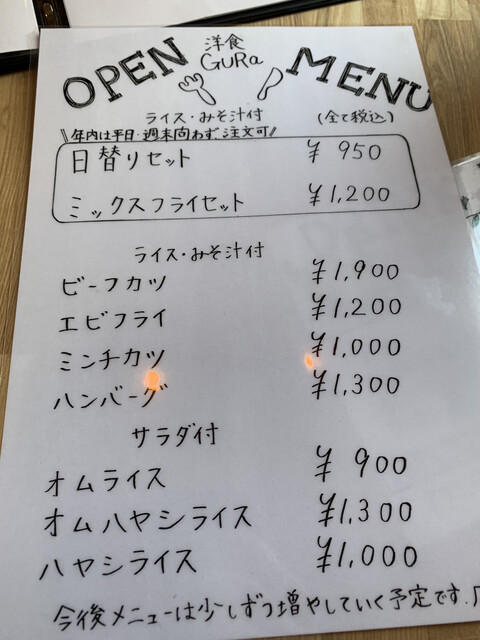 OPEN 洋食 MENU
GURa
ライス・みそ汁付 (全て税込)
\\年内は平日・週末問わず、注文可//
日替りセット ¥950
ミックスフライセット ¥1,200
ライス・みそ汁付
ビーフカツ ¥1,900
エビフライ ¥1,200
ミンチカツ ¥1,000
ハンバーグ ¥1,300
サラダ付
オムライス ¥900
オムハヤシライス ¥1,300
ハヤシライス ¥1,000
今後メニューは少しずつ増やしていく予定です。